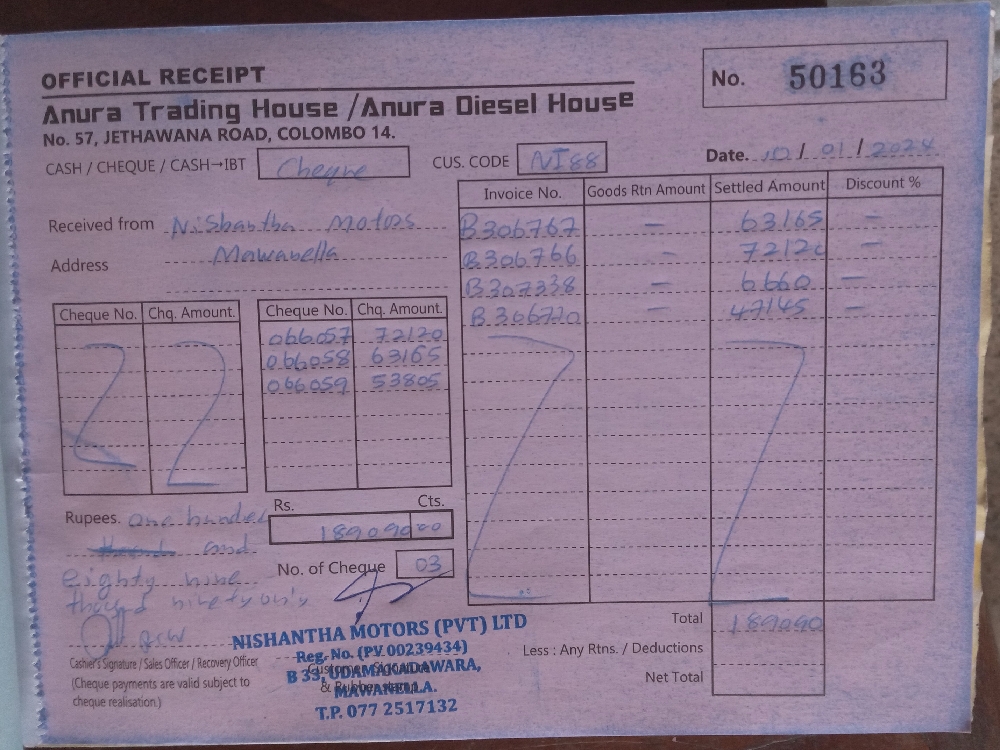 OFFICIAL RECEIPT
No. 50163
Anura Trading House / Anura Diesel House
No. 57, JETHAWANA ROAD, COLOMBO 14.
CASH / CHEQUE / CASH→IBT Cheque CUS. CODE NI88 Date. 10 / 01 / 2024
Received from Nishantha Motors
Address Mawanella
Invoice No. Goods Rtn Amount Settled Amount Discount %
B306767 — 63165 —
B306766 — 72120 —
B307338 — 6660 —
B306720 — 47145 —
Cheque No. Chq. Amount. Cheque No. Chq. Amount.
066057 72120
066058 63165
066059 53805
Rupees. one hundred
and
eighty nine
Rs. Cts.
189090 00
No. of Cheque 03
Total 189090
Less : Any Rtns. / Deductions
Net Total
Cashier's Signature / Sales Officer / Recovery Officer
(Cheque payments are valid subject to
cheque realisation.)
Customer Signature
& Rubber
NISHANTHA MOTORS (PVT) LTD
Reg. No. (PV 00239434)
B 33, UDAMAKADAWARA,
MAWANELLA.
T.P. 077 2517132